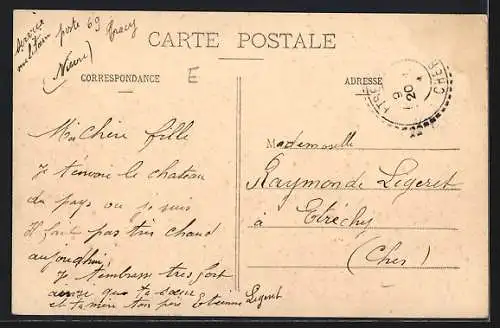 service
militaire poste 69 Tracy
(Nievre)
CARTE POSTALE
CORRESPONDANCE
E
ADRESSE
9
20
CHER
Ma Chère fille
Je t'envoie le chateau
du pays ou je suis
Il fait pas tres chaud
aujourd'hui,
Je t'embrasse tres fort
ainsi que ta sœur
et ta mère ton père Etienne Ligeret
Mademoiselle
Raymonde Ligeret
à Etréchy
(Cher)